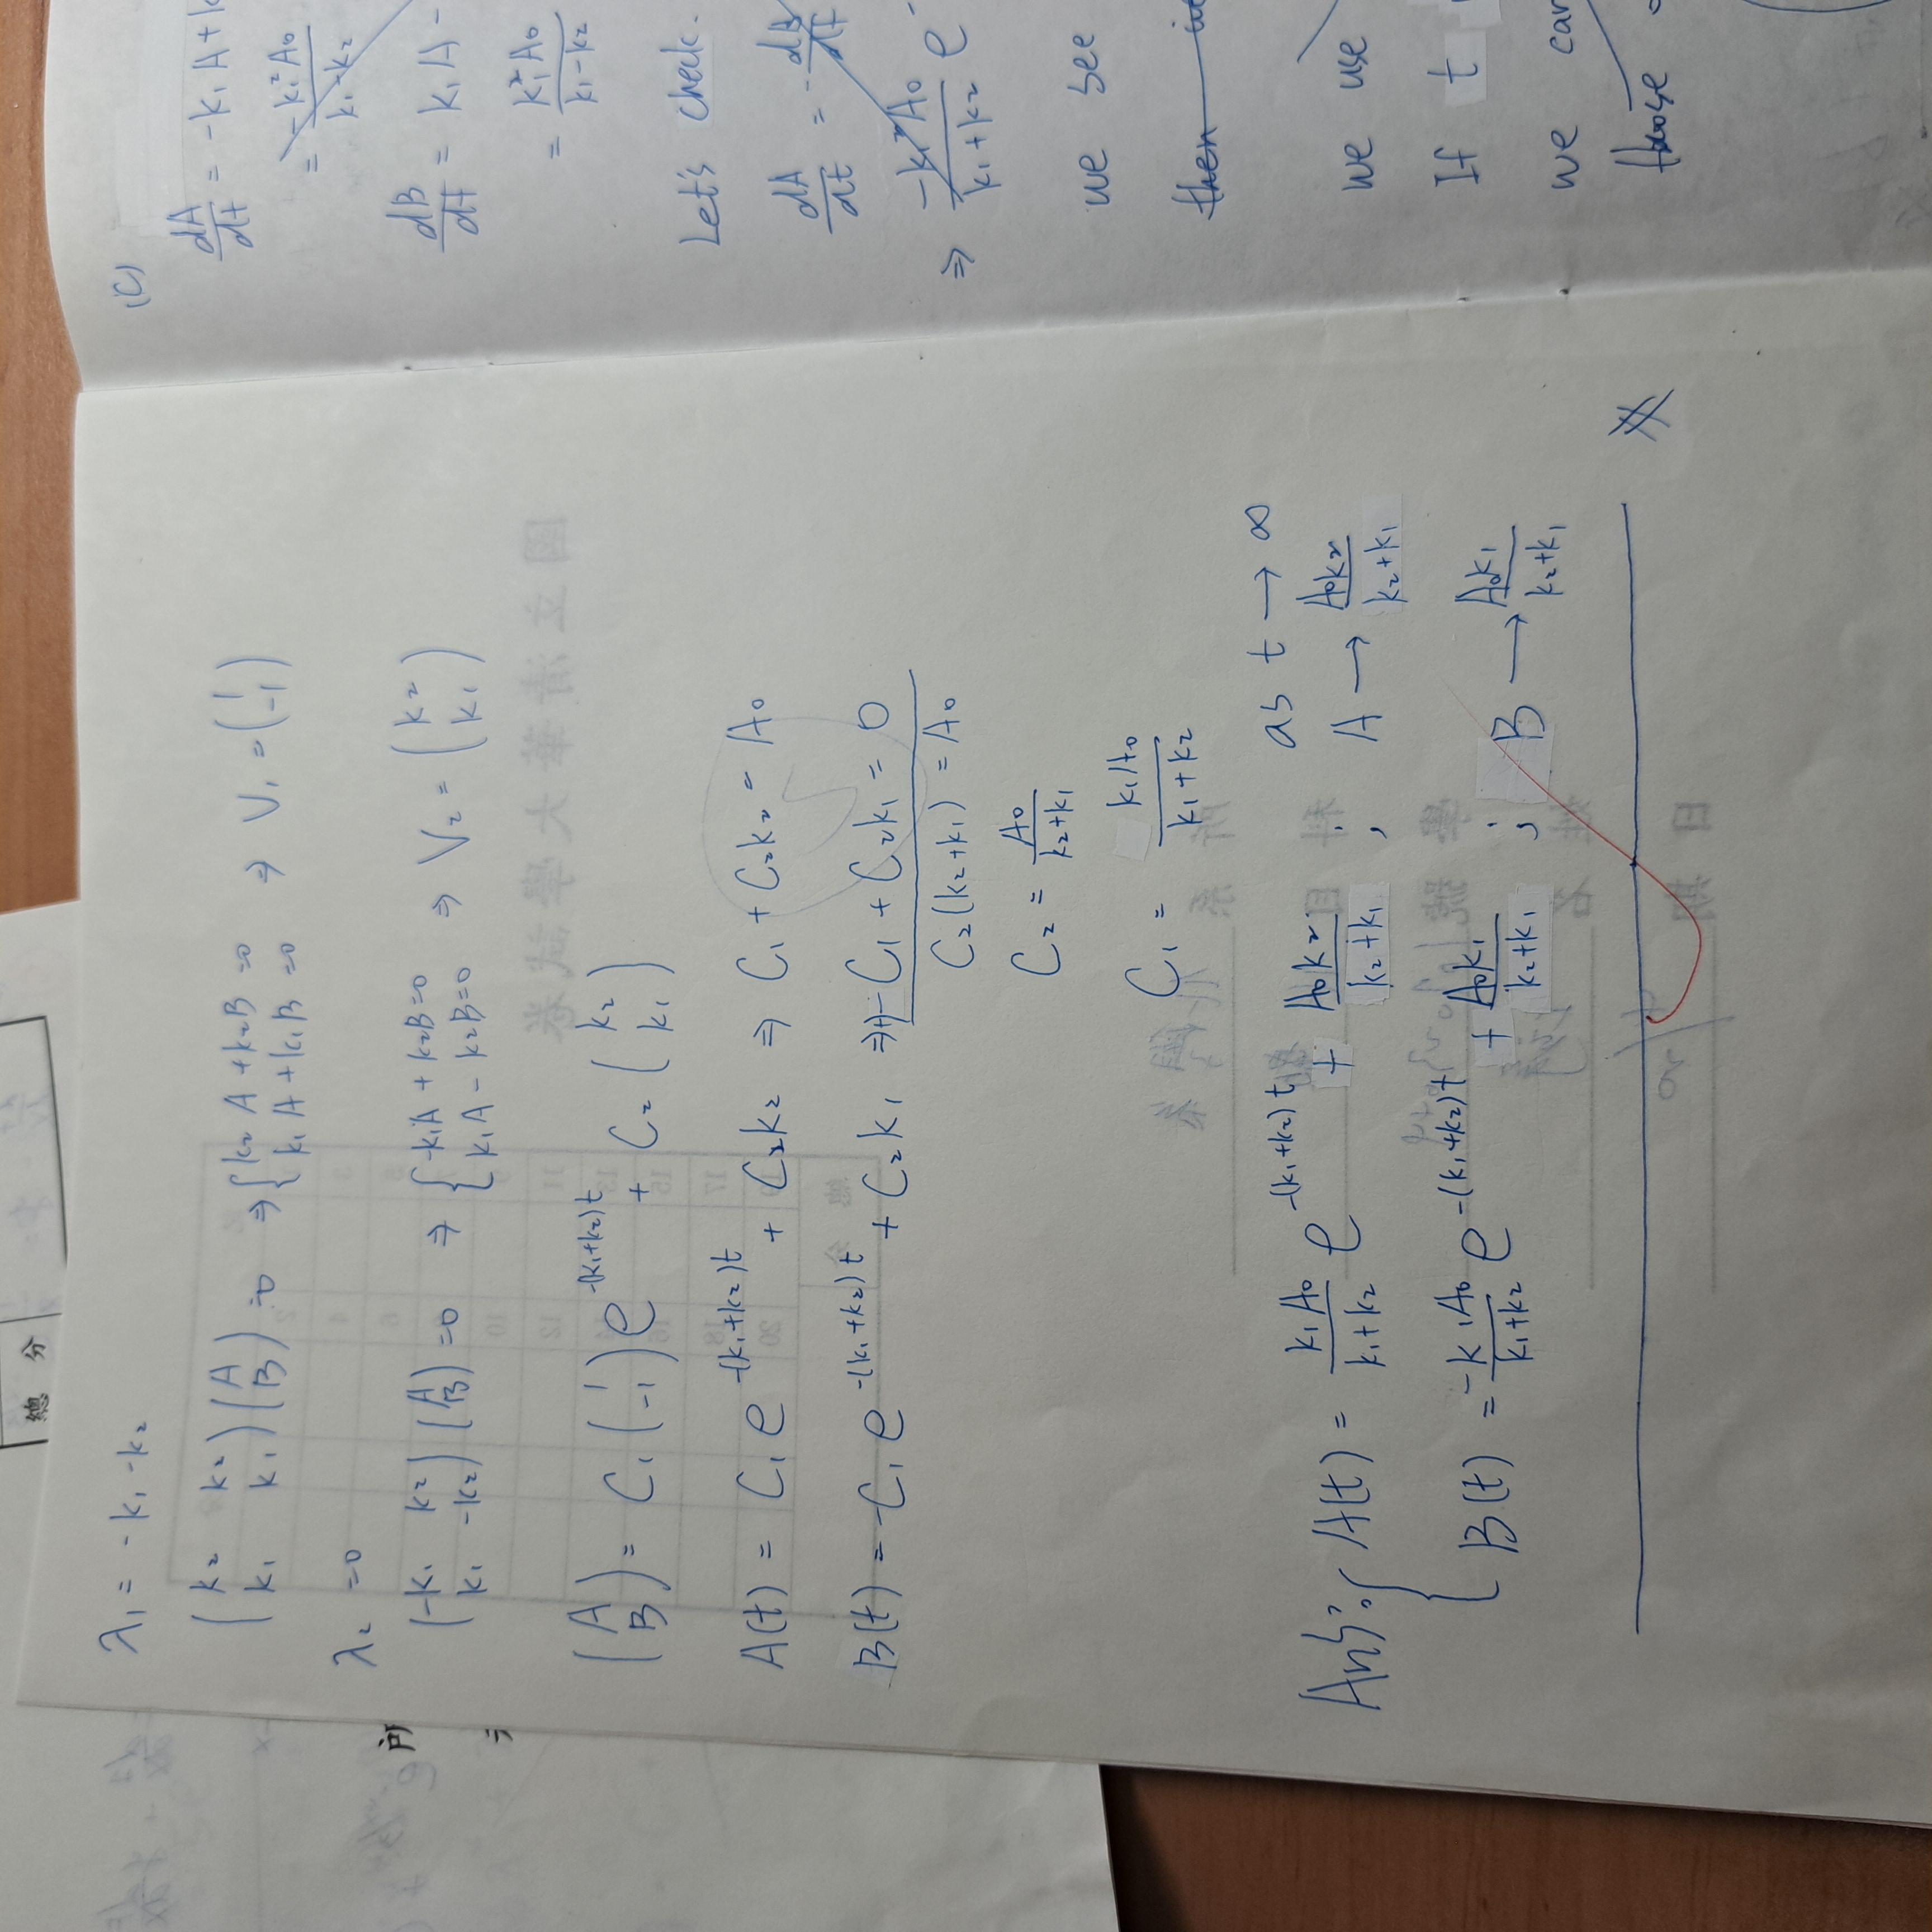 λ₁ = -k₁-k₂
(k₂ k₂
k₁ k₁) (A
B) = 0 ⇒ { k₂A + k₂B = 0
k₁A + k₁B = 0 ⇒ V₁ = (1
-1)
λ₂ = 0
(-k₁ k₂
k₁ -k₂) (A
B) = 0 ⇒ { -k₁A + k₂B = 0
k₁A - k₂B = 0 ⇒ V₂ = (k₂
k₁)
(A
B) = C₁ (1
-1) e^{-(k₁+k₂)t} + C₂ (k₂
k₁)
A(t) = C₁ e^{-(k₁+k₂)t} + C₂k₂ ⇒ C₁ + C₂k₂ = A₀
B(t) = -C₁ e^{-(k₁+k₂)t} + C₂k₁ ⇒ +) -C₁ + C₂k₁ = 0
C₂(k₂+k₁) = A₀
C₂ = A₀/(k₂+k₁)
C₁ = k₁A₀/(k₁+k₂)
as t → ∞
Ans: { A(t) = k₁A₀/(k₁+k₂) e^{-(k₁+k₂)t} + A₀k₂/(k₂+k₁) ; A → A₀k₂/(k₂+k₁)
B(t) = -k₁A₀/(k₁+k₂) e^{-(k₁+k₂)t} + A₀k₁/(k₂+k₁) ; B → A₀k₁/(k₂+k₁)
(c) dA/dt = -k₁A +
= -k₁²A₀/(k₁-k₂)
dB/dt = k₁A -
= k₁²A₀/(k₁-k₂)
Let's check.
dA/dt = -dA/dt
⇒ -k₁²A₀/(k₁+k₂) e
we see
then
we use
If t
we can
choose
總分